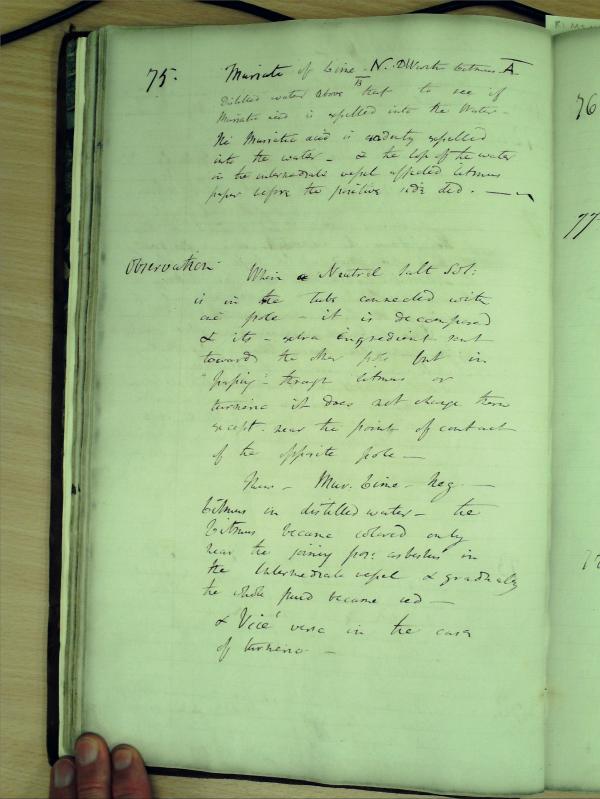 75. Muriate of Lime - N. D Water Litmus A
B
distilled water above that to see if
Muriatic acid is expelled into the Water -
The Muriatic acid is evidently expelled
into the water - & the top of the water
in the intermediate vessel affected litmus
paper before the positive side did. -
Observation When a Neutral Salt Sol:
is in the Tube connected with
one pole - it is decomposed
& its - extra ingredient sent
towards the other pole but in
"passing" through litmus or
turmeric it does not change them
except - near the points of contact
of the opposite pole -
Thus - Mur. Lime - Neg. -
Litmus in distilled water - the
Litmus became colored only
near the joining pos: asbestus in
the Intermediate vessel & gradually
the whole fluid became red -
& Vice versa in the case
of turmeric -
76
77